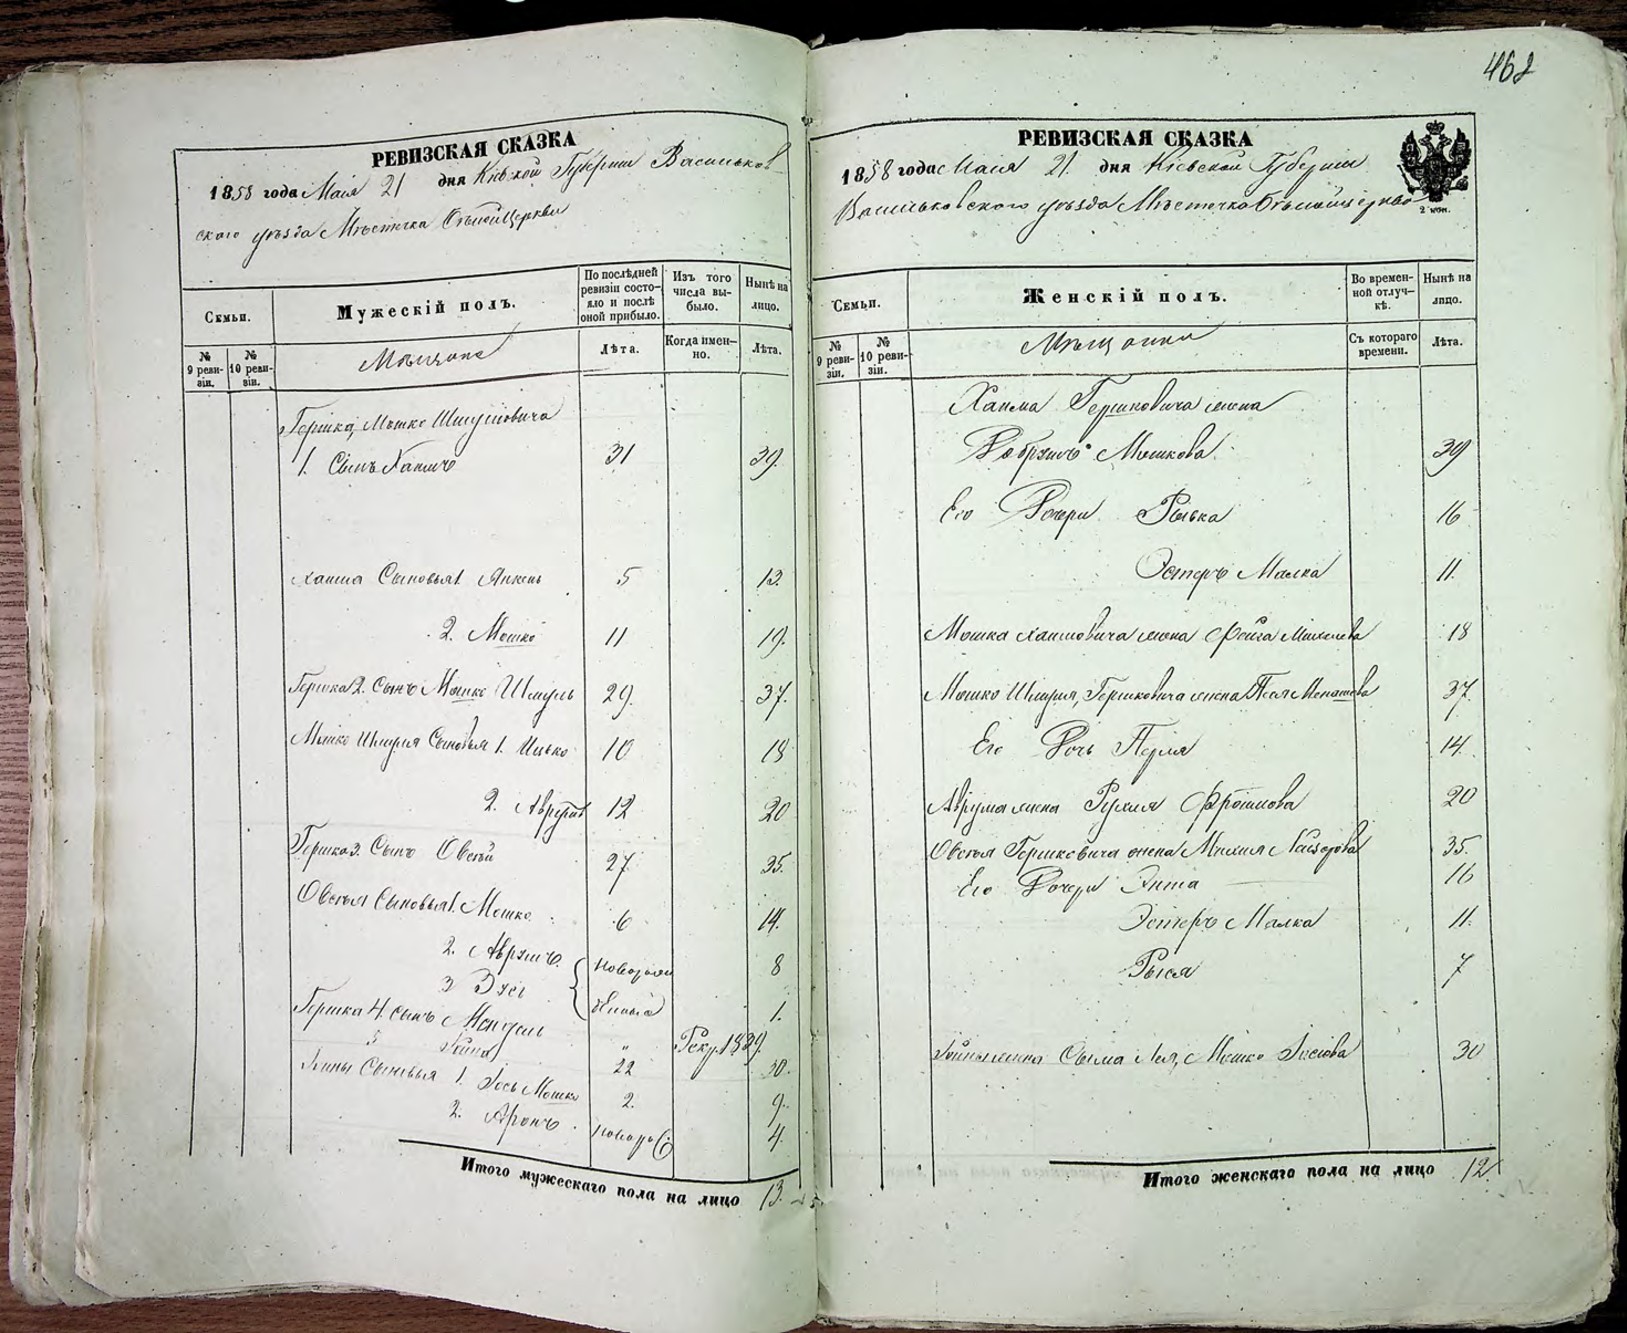 462
РЕВИЗСКАЯ СКАЗКА
1858 года Маія 21 дня Кіевской Губерніи Васильков-
скаго уѣзда Мѣстечка Бѣлой Церкви
Семьи.
Мужескій полъ.
По послѣдней ревизіи состо-яло и послѣ оной прибыло.
Изъ того числа вы-было.
Нынѣ на лицо.
№ 9 реви-зіи.
№ 10 реви-зіи.
Мѣщане
Лѣта.
Когда имен-но.
Лѣта.
Гершка, Мошко Шмулiовича
1. Сынъ Хаимъ 31 39.
Хаима Сыновья 1. Янкель 5 13.
2. Мошко 11 19.
Гершка 2. Сынъ Мошко Шмуль 29. 37.
Мошко Шмуля Сыновья 1. Ицько 10 18
2. Аврумъ 12 20
Гершка 3. Сынъ Овсѣй 27. 35.
Овсѣя Сыновья 1. Мошко 6 14.
2. Аврумъ новорож 8
3 денные 1.
Гершка 4. сынъ Мендель Рекр. 1839.
5 " 22 30.
Сыновья 1. Іось Мошко 2. 9.
2. Аронъ новоро 4.
Итого мужескаго пола на лицо 13.
РЕВИЗСКАЯ СКАЗКА
1858 года Маія 21. дня Кіевской Губерніи
Васильковскаго уѣзда Мѣстечка Бѣлойцеркво
2 коп.
Семьи.
Женскій полъ.
Во времен-ной отлуч-кѣ.
Нынѣ на лицо.
№ 9 реви-зіи.
№ 10 реви-зіи.
Мѣщанки
Съ котораго времени.
Лѣта.
Хаима Гершковича жена
Добрушъ Мошкова 39
Его Дочери Ривка 16
Эстеръ Малка 11.
Мошка Хаимовича жена Фейга 18
Мошко Шмуля, Гершковича жена 37.
Его Дочь Перля 14.
Аврума жена Рухля Фроимова 20
Овсѣя Гершковича жена Лейзерова 35.
Его Дочери Энта 16
Эстеръ Малка 11.
Рыся 7
жена Сыма Лея, Мошко Іосіова 30
Итого женскаго пола на лицо 12.